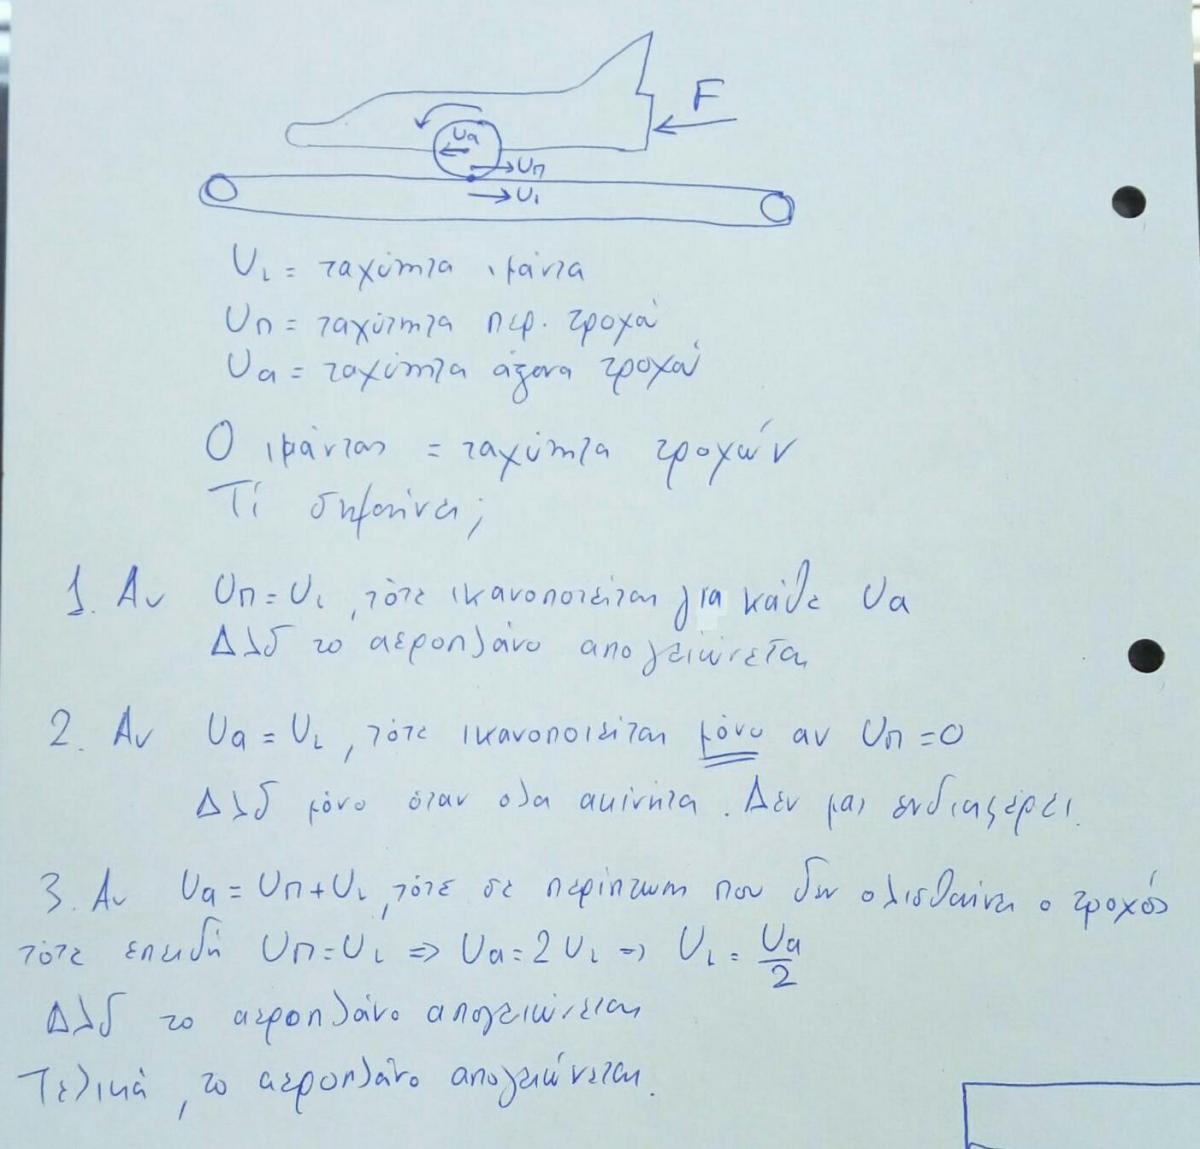 F
υα
υπ
υι
υι = ταχύτητα ιμάντα
υπ = ταχύτητα περ. τροχού
υα = ταχύτητα άξονα τροχού
Ο ιμάντας = ταχύτητα τροχών
Τί σημαίνει;
1. Αν υπ = υι, τότε ικανοποιείται για κάθε υα
Δλδ το αεροπλάνο απογειώνεται
2. Αν υα = υι, τότε ικανοποιείται μόνο αν υπ = 0
Δλδ μόνο όταν ολα ακίνητα. Δεν μας ενδιαφέρει.
3. Αν υα = υπ + υι, τότε σε περίπτωση που δεν ολισθαίνει ο τροχός
τότε επειδή υπ = υι => υα = 2υι => υι = υα/2
Δλδ το αεροπλάνο απογειώνεται
Τελικά, το αεροπλάνο απογειώνεται.